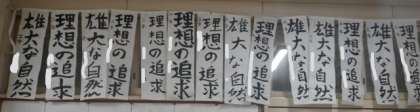 理想の追求
雄大な自然
理想の追求
雄大な自然
雄大な自然
理想の追求
雄大な自然
理想の追求
理想の追求
理想の追求
理想の追求
雄大な自然
理想の追求
雄大な自然